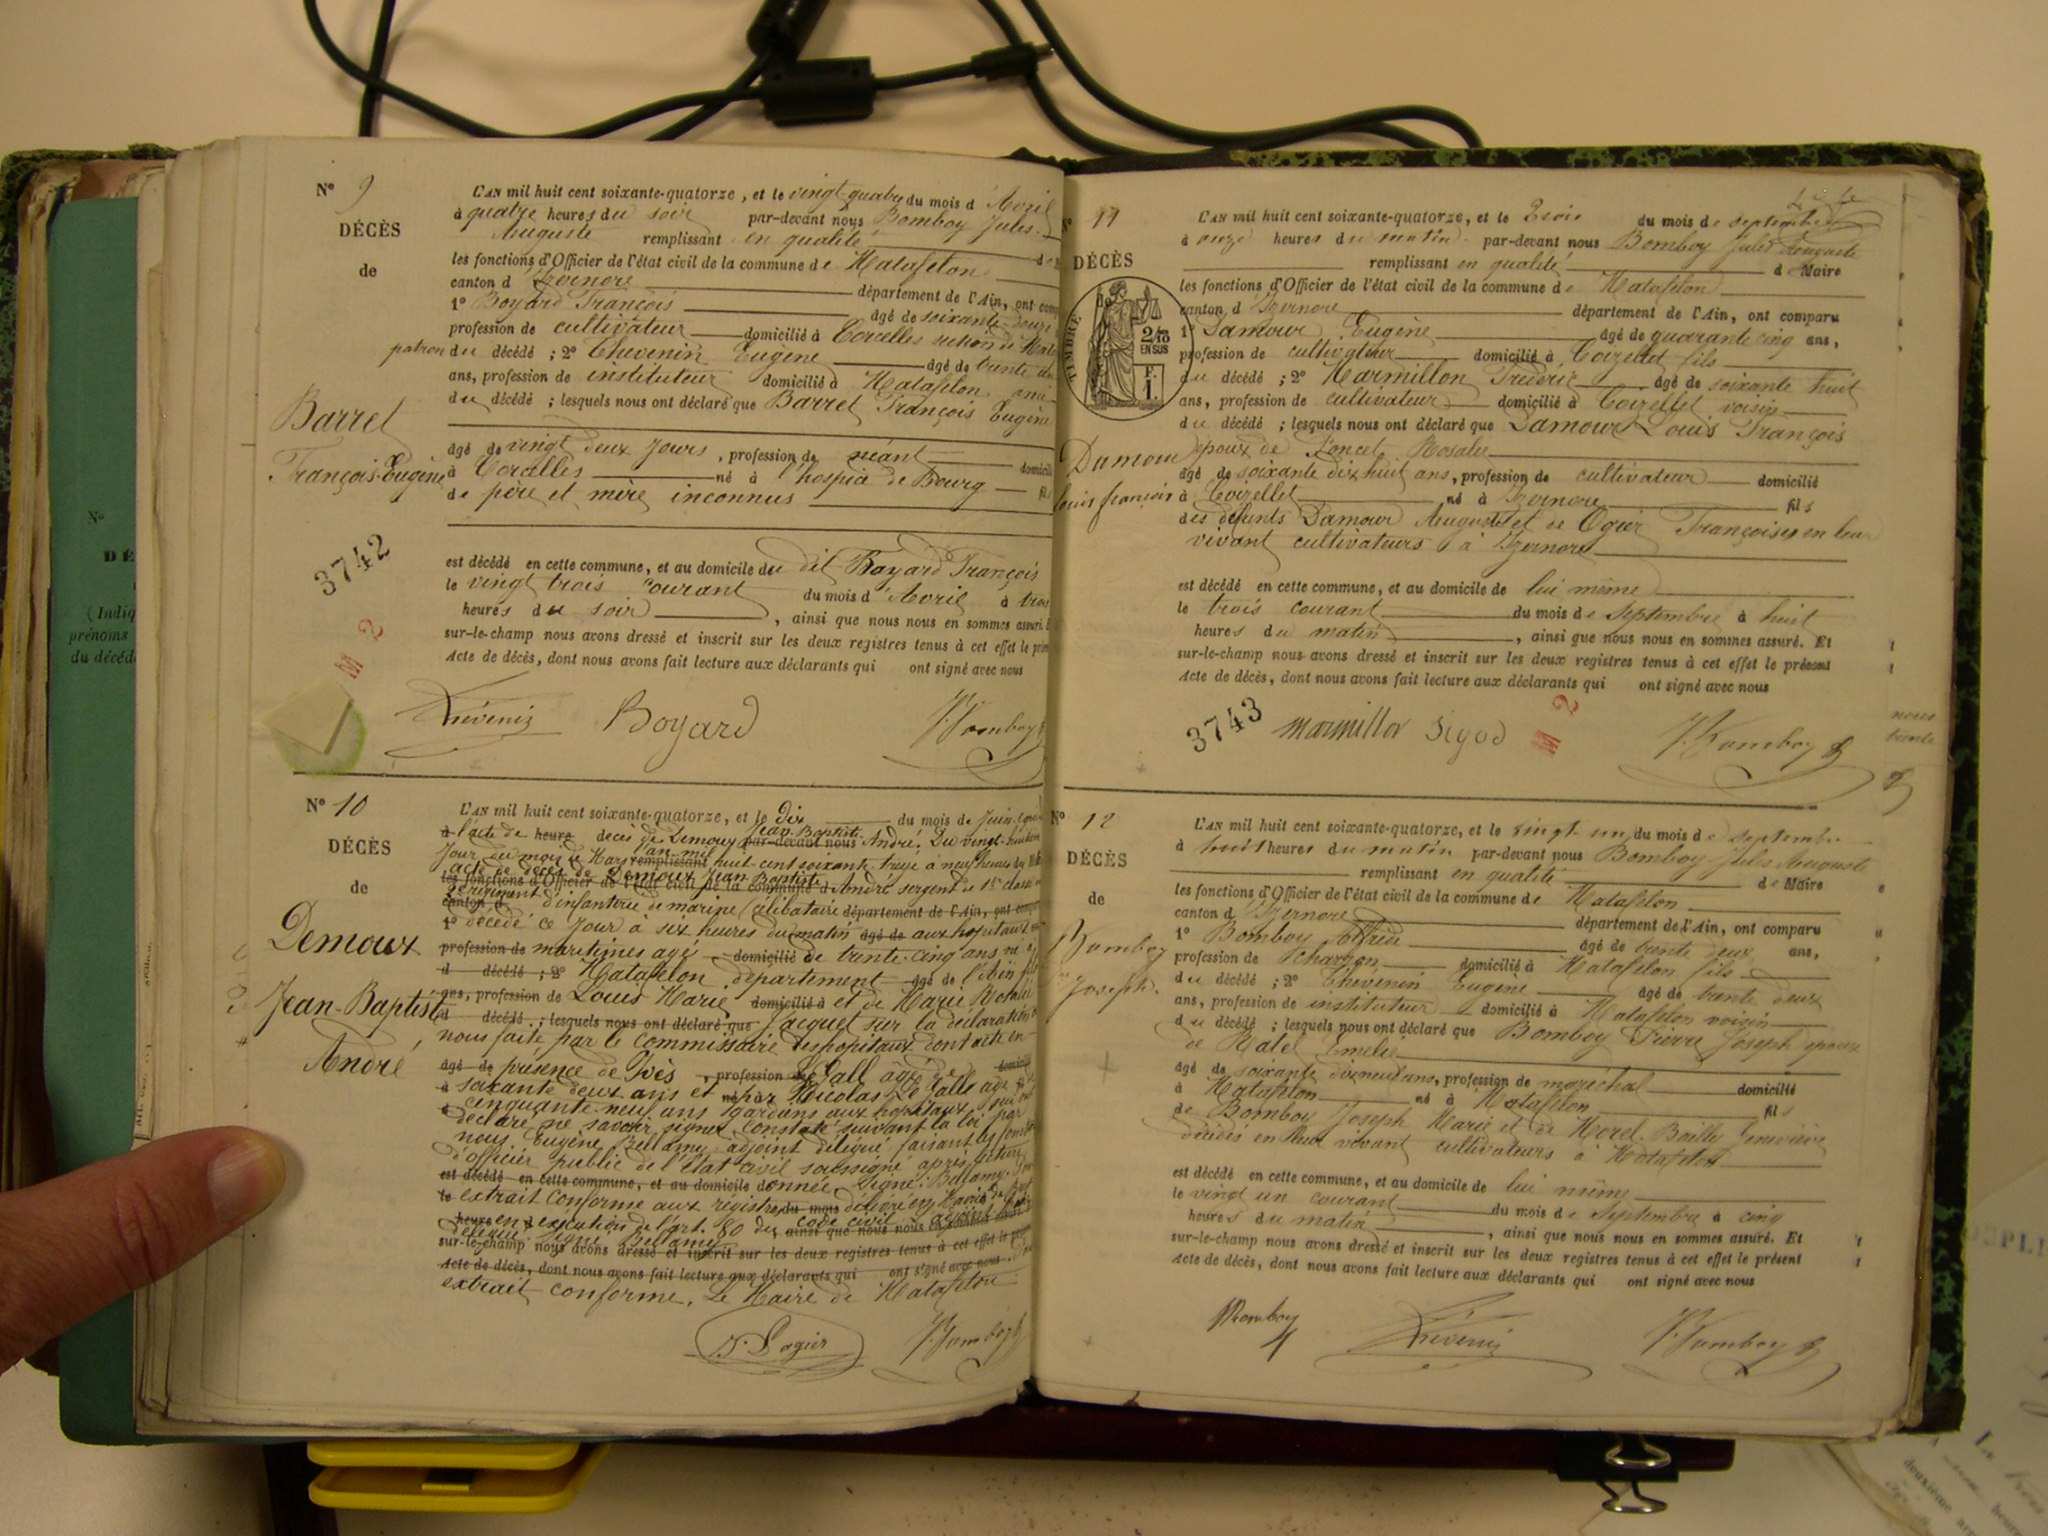 N° 9
DÉCÈS
de
Barret
François-Eugène
3742
M 2
L'AN mil huit cent soixante-quatorze, et le vingt-quatre du mois d'Avril
à quatre heures du soir par-devant nous Bomboy Jules
Auguste remplissant en qualité
les fonctions d'Officier de l'état civil de la commune de Matafelon
canton d'Izernore département de l'Ain, ont
1° Boyard François âgé de soixante
profession de cultivateur domicilié à Corcelles section de
patron du décédé ; 2° Thevenin Eugène âgé de trente
ans, profession de instituteur domicilié à Matafelon ami
du décédé ; lesquels nous ont déclaré que Barret François Eugène
âgé de vingt deux jours, profession de néant
à Corcelles né à l'hospice de Bourg
de père et mère inconnus
est décédé en cette commune, et au domicile du dit Boyard François
le vingt trois courant du mois d'Avril à trois
heures du soir, ainsi que nous nous en sommes assuré.
sur-le-champ nous avons dressé et inscrit sur les deux registres tenus à cet effet le
Acte de décès, dont nous avons fait lecture aux déclarants qui ont signé avec nous
Thévenin Boyard J. Bomboy
N° 10
DÉCÈS
de
Demoux
Jean-Baptiste
André
L'AN mil huit cent soixante-quatorze, et le Dix du mois de Juin
à l'acte de heure décès de Demoux Jean-Baptiste par-devant nous André. Du vingt-huitième
Jour du mois de Mars l'an mil remplissant huit cent soixante treize à neuf heures du
acte de décès de Demoux Jean Baptiste
les fonctions d'Officier de l'état civil de la commune d André sergent de 1re classe
régiment canton d d'infanterie de marine célibataire département de l'Ain, ont
1° décédé ce Jour à six heures du matin âgé de aux hopitaux
profession de maritimes agé domicilié de trente-cinq ans né à
d décédé ; 2° Matafelon département âgé de de l'Ain fils
ans, profession de Louis Marie domicilié à et de Marie
d décédé ; lesquels nous ont déclaré que Jacquet sur la déclaration
nous faite par le Commissaire des hopitaux dont acte en
âgé de présence de Yvès, profession de Le Gall âgé de
à soixante deux ans et né par Nicolas Le Gall âgé
d cinquante-neuf ans gardiens aux hopitaux qui ont
déclaré ne savoir signer. Constaté suivant la loi par
nous Eugène Bellamy adjoint délégué faisant les fonctions
d'officier public de l'état civil soussigné après lecture
est décédé en cette commune, et au domicile donnée. Signé : Bellamy.
le extrait conforme aux régistres du mois délivré en Mairie
heure en exécution de l'art. 80 du code civil ainsi que nous nous
délégué signé Bellamy
sur-le-champ nous avons dressé et inscrit sur les deux registres tenus à cet effet le
Acte de décès, dont nous avons fait lecture aux déclarants qui ont signé avec nous
extrait conforme. Le Maire de Matafelon
J. Bomboy
N° 11
DÉCÈS
de
TIMBRE
2/10
EN SUS
F.
1.
Damour
Louis françois
L'AN mil huit cent soixante-quatorze, et le Trois du mois de septembre
à onze heures du matin par-devant nous Bomboy Jules Auguste
remplissant en qualité de Maire
les fonctions d'Officier de l'état civil de la commune de Matafelon
canton d'Izernore département de l'Ain, ont comparu
1° Damour Eugène âgé de quarante cinq ans,
profession de cultivateur domicilié à Coizellet fils
du décédé ; 2° Marmillon Frédéric âgé de soixante huit
ans, profession de cultivateur domicilié à Coizellet voisin
du décédé ; lesquels nous ont déclaré que Damour Louis François
époux de Poncet Rosalie
âgé de soixante dix huit ans, profession de cultivateur domicilié
à Coizellet né à Izernore fils
des défunts Damour Auguste et de Ogier Françoise en leur
vivant cultivateurs à Izernore
est décédé en cette commune, et au domicile de lui même
le trois courant du mois de Septembre à huit
heures du matin, ainsi que nous nous en sommes assuré. Et
sur-le-champ nous avons dressé et inscrit sur les deux registres tenus à cet effet le présent
Acte de décès, dont nous avons fait lecture aux déclarants qui ont signé avec nous
3743 marmillon M 2 J. Bomboy
N° 12
DÉCÈS
de
Bomboy
Joseph.
L'AN mil huit cent soixante-quatorze, et le vingt un du mois de septembre
à huit heures du matin par-devant nous Bomboy Jules Auguste
remplissant en qualité de Maire
les fonctions d'Officier de l'état civil de la commune de Matafelon
canton d'Izernore département de l'Ain, ont comparu
1° Bomboy Alfred âgé de trente deux ans,
profession de charron domicilié à Matafelon fils
du décédé ; 2° Thévenin Eugène âgé de trente deux
ans, profession de instituteur domicilié à Matafelon voisin
du décédé ; lesquels nous ont déclaré que Bomboy Pierre Joseph époux
de Matel Emelie
âgé de soixante dix neuf ans, profession de maréchal domicilié
à Matafelon né à Matafelon fils
de Bomboy Joseph Marie et de Morel-Bailly Geneviève
décédés en leur vivant cultivateurs à Matafelon
est décédé en cette commune, et au domicile de lui même
le vingt un courant du mois de Septembre à cinq
heures du matin, ainsi que nous nous en sommes assuré. Et
sur-le-champ nous avons dressé et inscrit sur les deux registres tenus à cet effet le présent
Acte de décès, dont nous avons fait lecture aux déclarants qui ont signé avec nous
Bomboy Thévenin J. Bomboy
N°
(Indiq
prénoms
du décéd